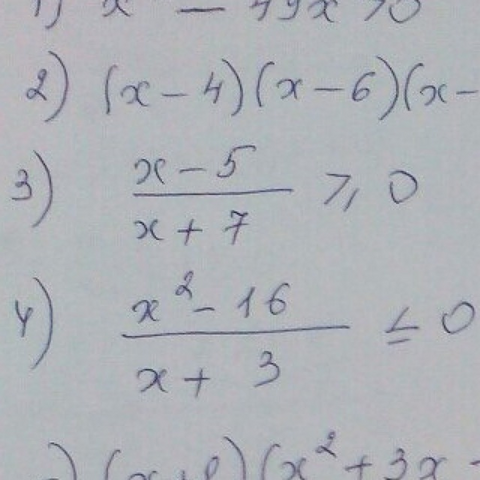 2) (x-4)(x-6)(x-
3) x-5 / x+7 ⩾ 0
4) x²-16 / x+ 3 ≤ 0
(x²+3x